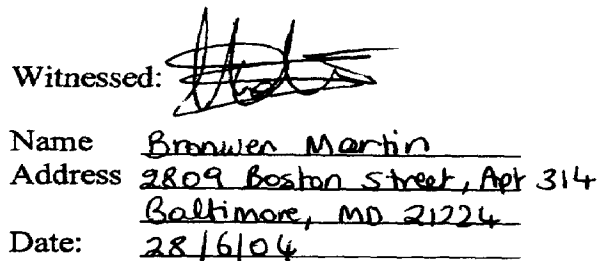 Witnessed:
Name Bronwen Martin
Address 2809 Boston Street, Apt 314
Baltimore, MD 21224
Date: 28/6/04